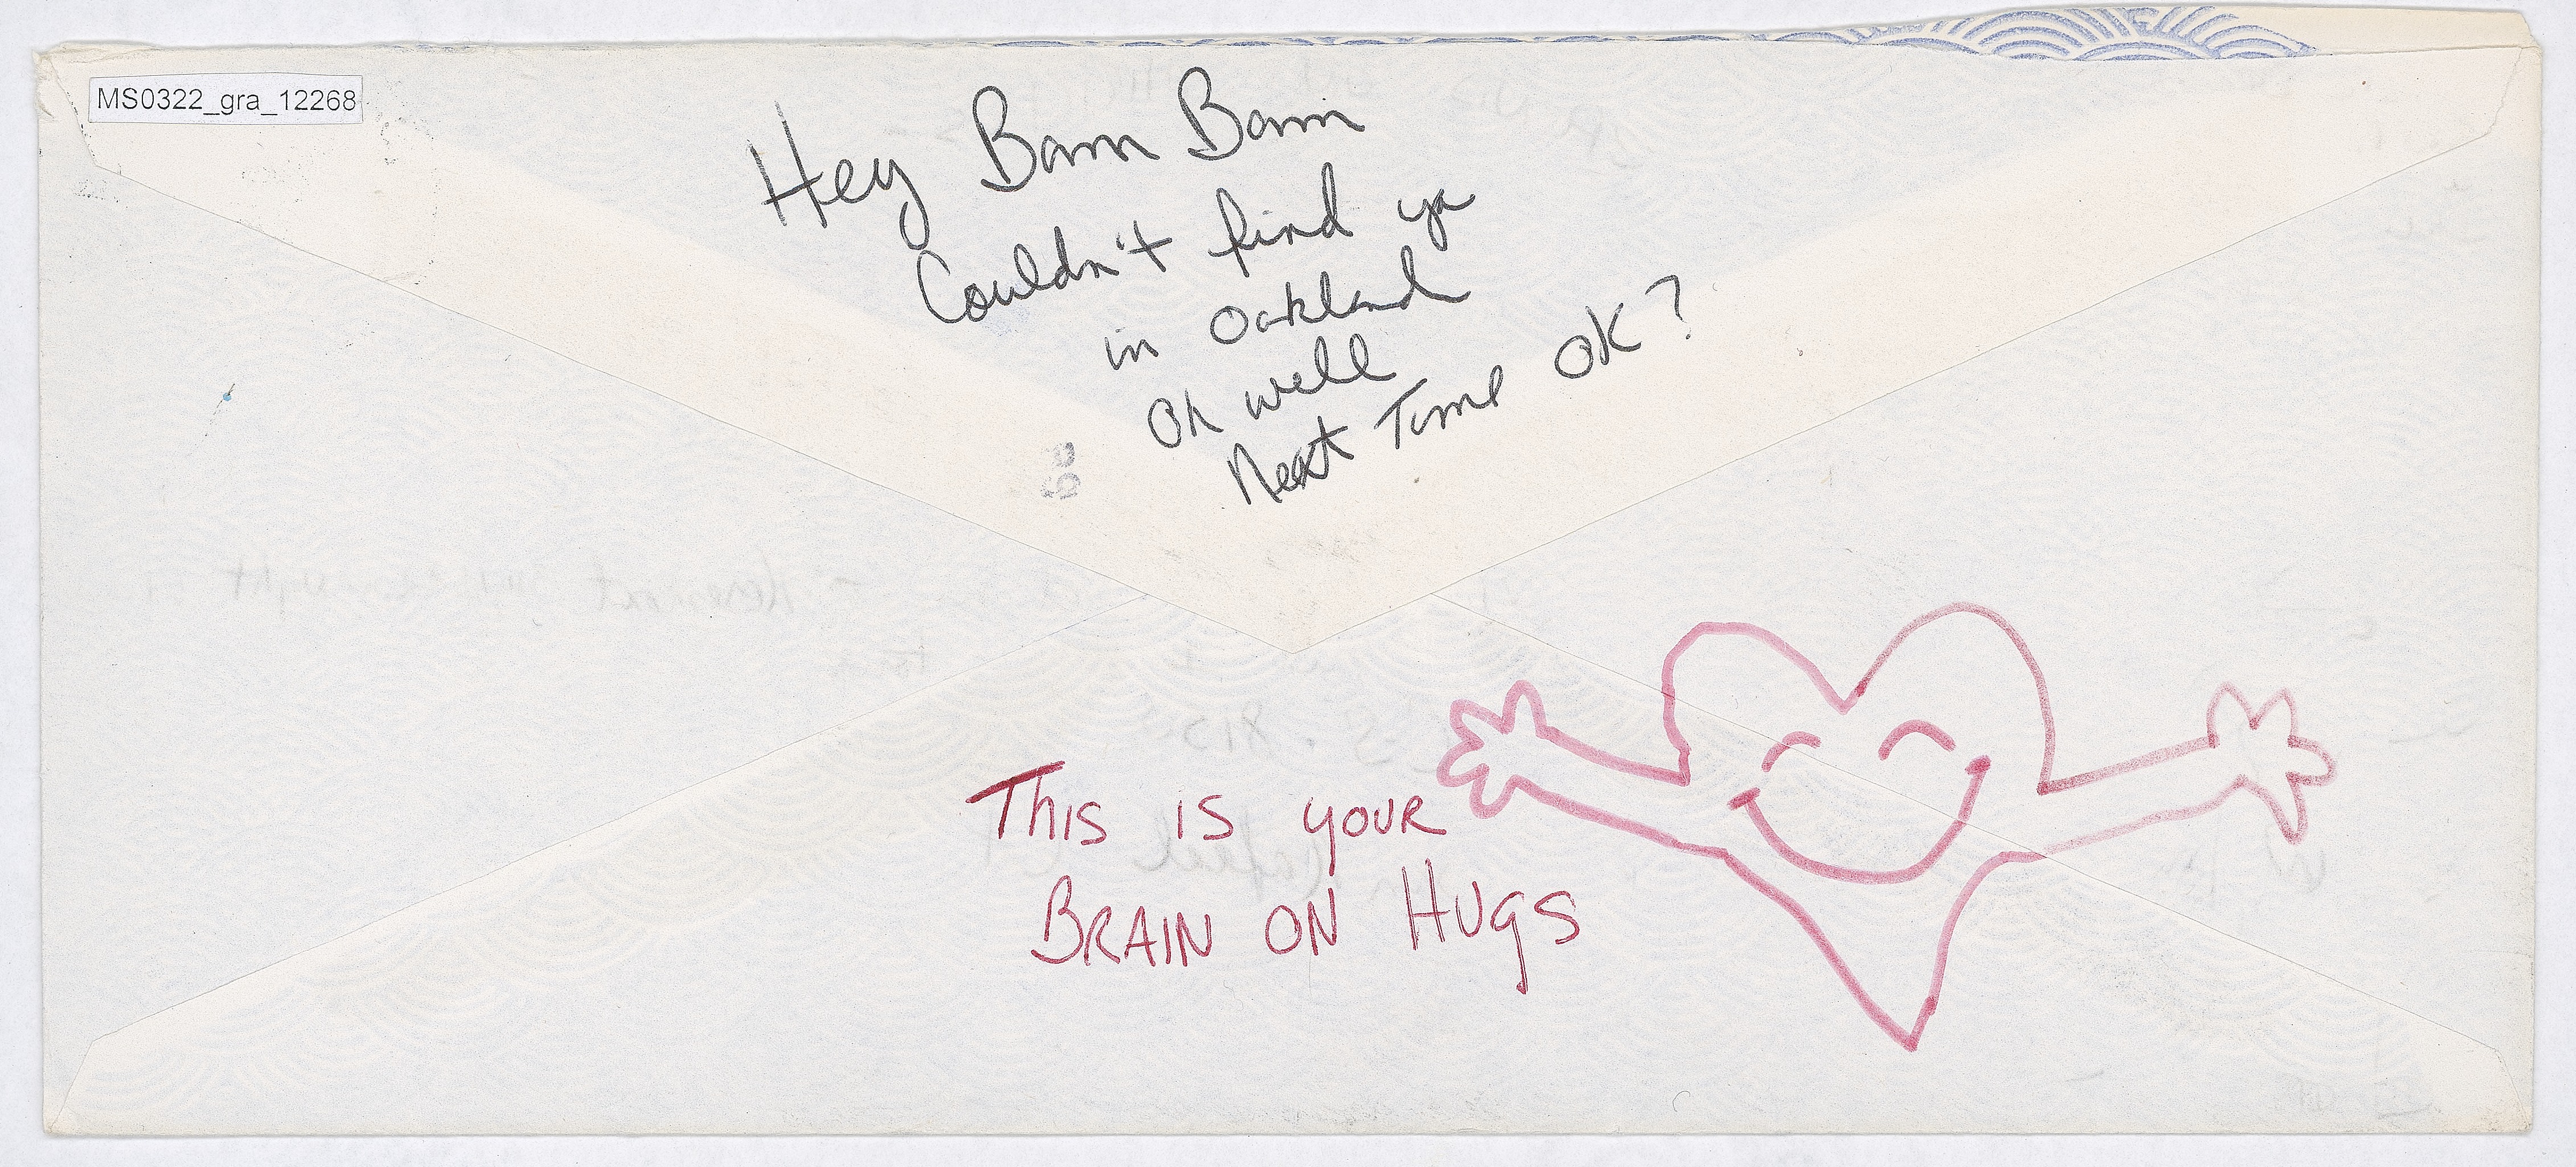 MS0322_gra_12268
Hey Bam Bam
Couldn't find ya
in Oakland
Oh well
Next Time OK?
This is your
Brain on Hugs